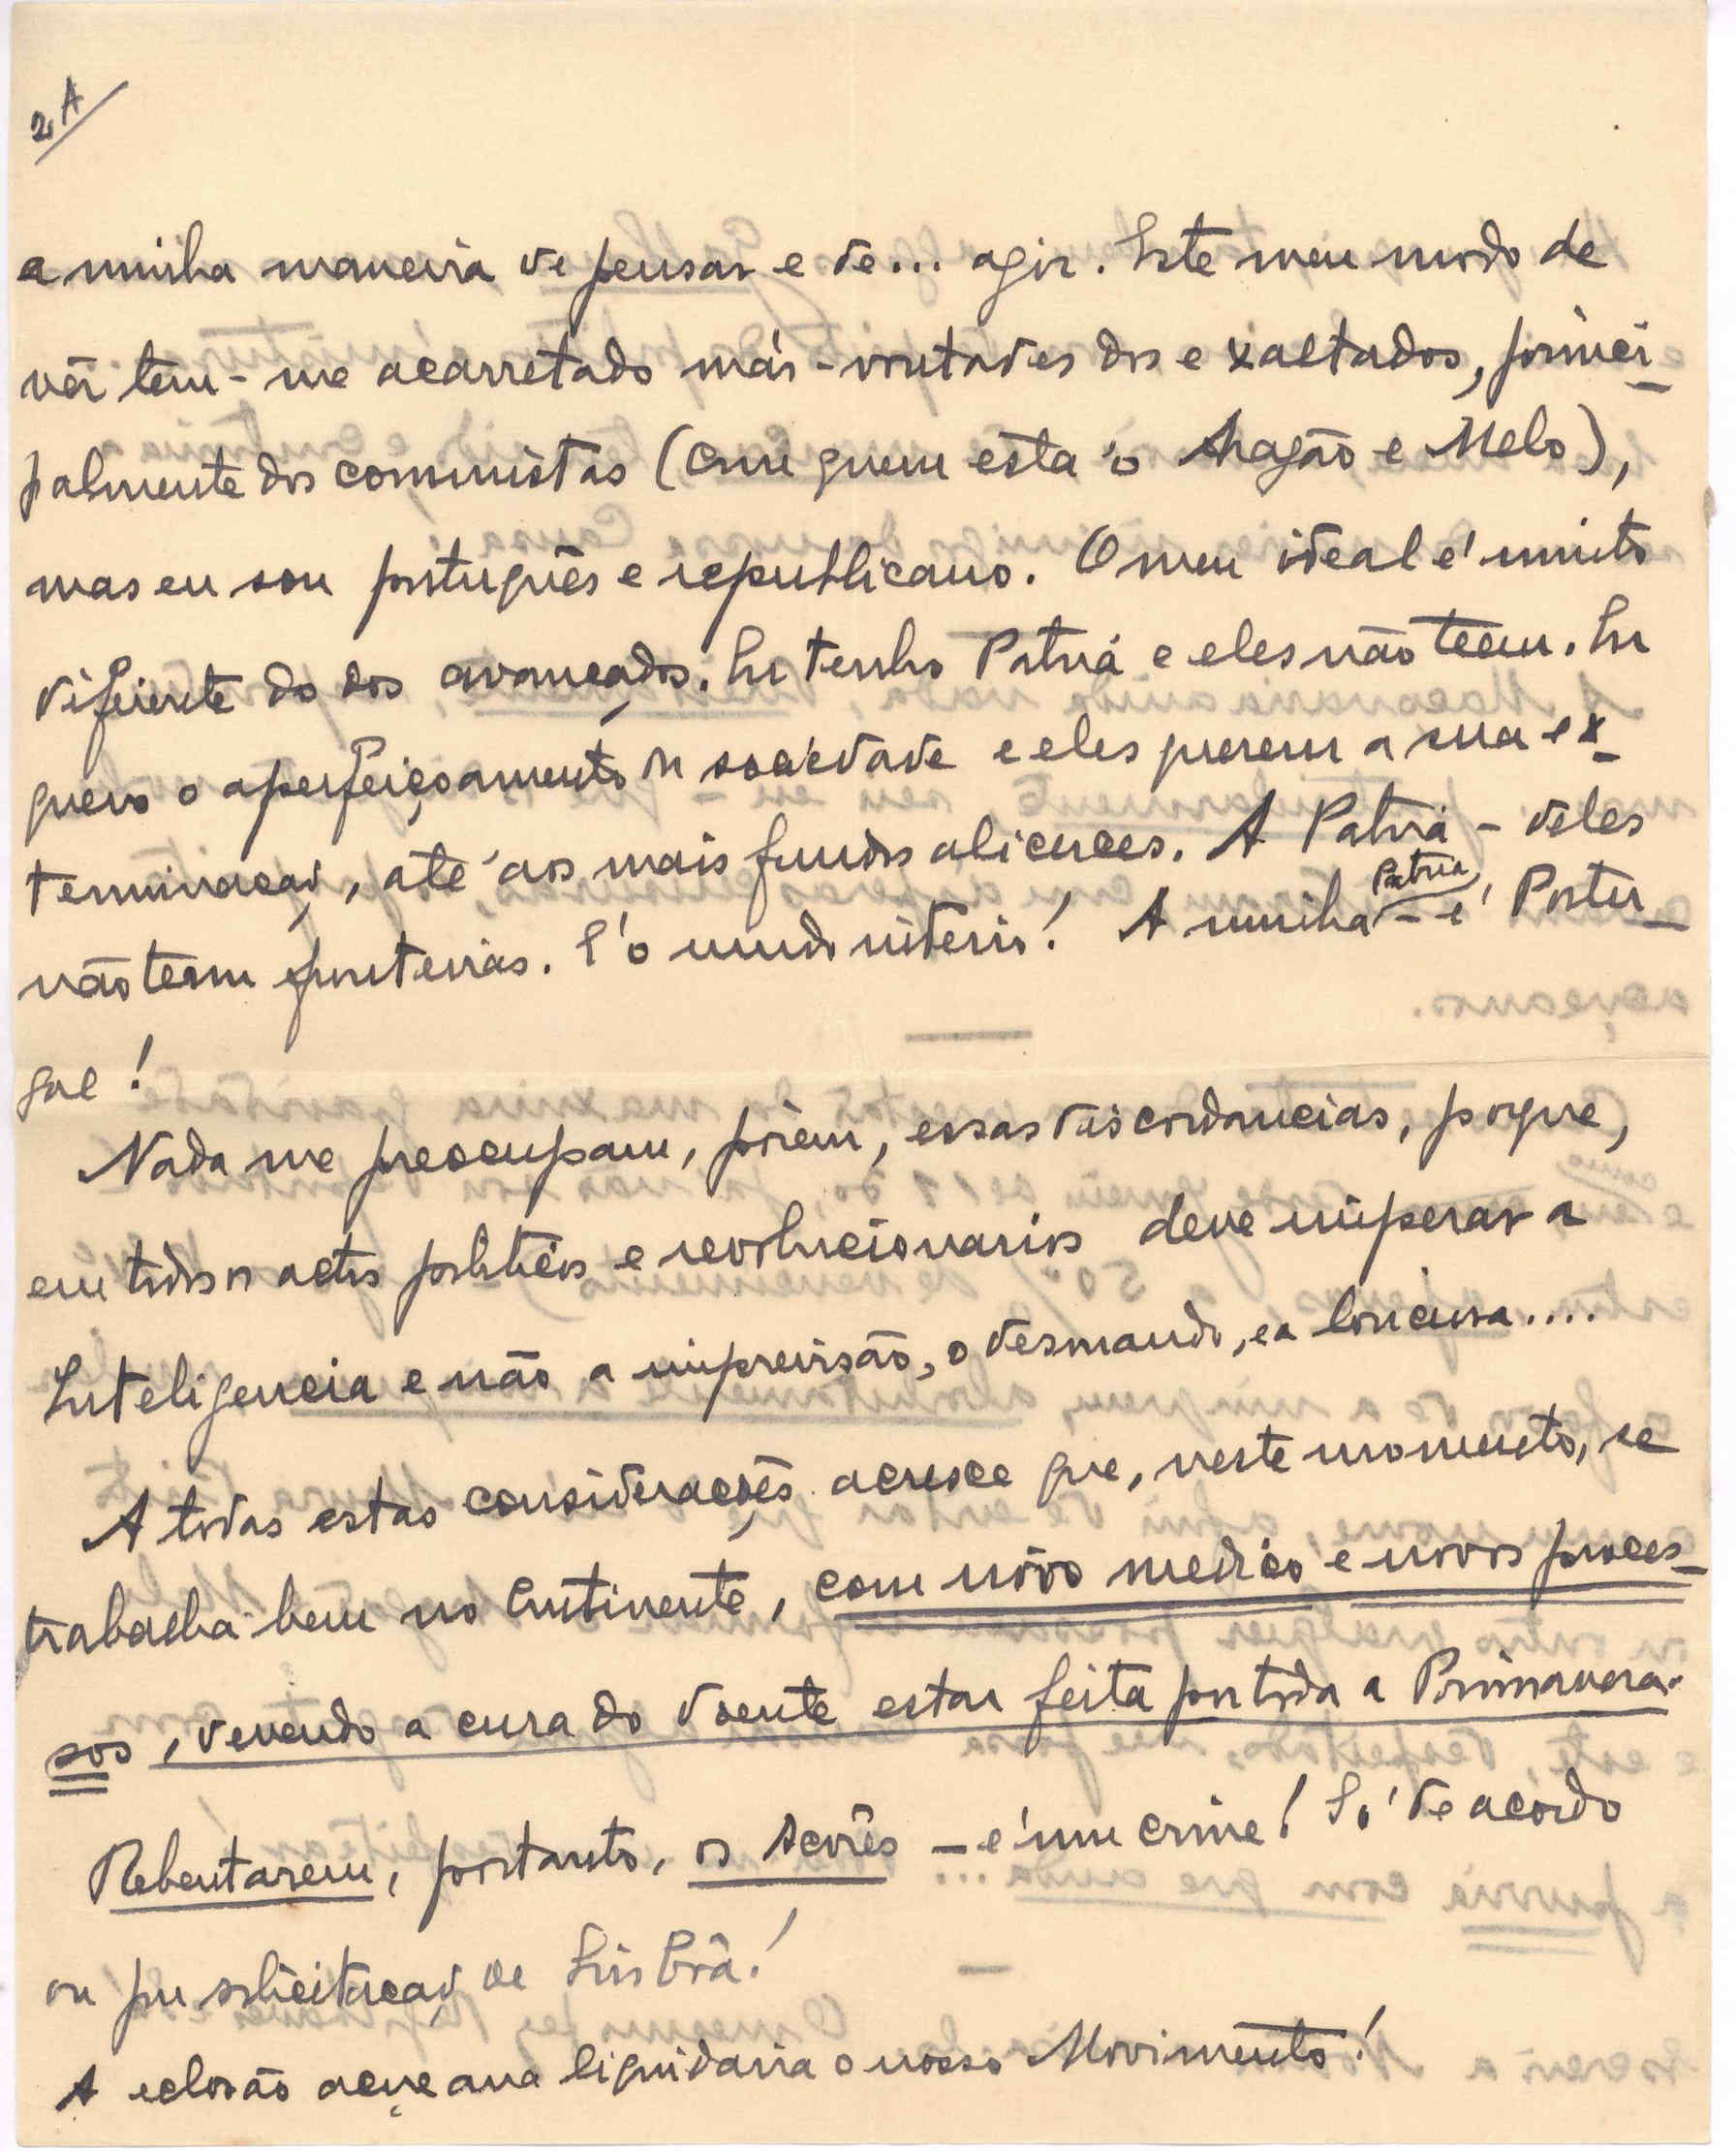 2A
a minha maneira de pensar e de... agir. Este meu modo de
vêr tem-me acarretado más-vontades dos exaltados, princi-
palmente dos comunistas (com quem está o Aragão e Melo),
mas eu sou português e republicano. O meu ideal é muito
diferente do dos avançados. Eu tenho Patria e eles não teem. Eu
quero o aperfeiçoamento da sociedade e eles querem a sua ex-
terminação, até aos mais fundos alicerces. A Patria - deles
não tem fronteiras. É o mundo inteiro! A minha Patria - é Portu-
gal!
Nada me preocupam, porêm, essas discordancias, porque,
em todos os actos politicos e revolucionarios deve imperar a
Inteligencia e não a imprevisão, o desmando, e a loucura....
A todas estas considerações acresce que, neste momento, se
trabalha bem no Continente, com nôvo medico e novos proces-
sos, devendo a cura do doente estar feita por toda a Primavera.
Rebentarem, portanto, os Açores - é um crime! Só de acordo
ou por solicitação de Lisbôa!
A eclosão açoreana liquidaria o nosso Movimento!